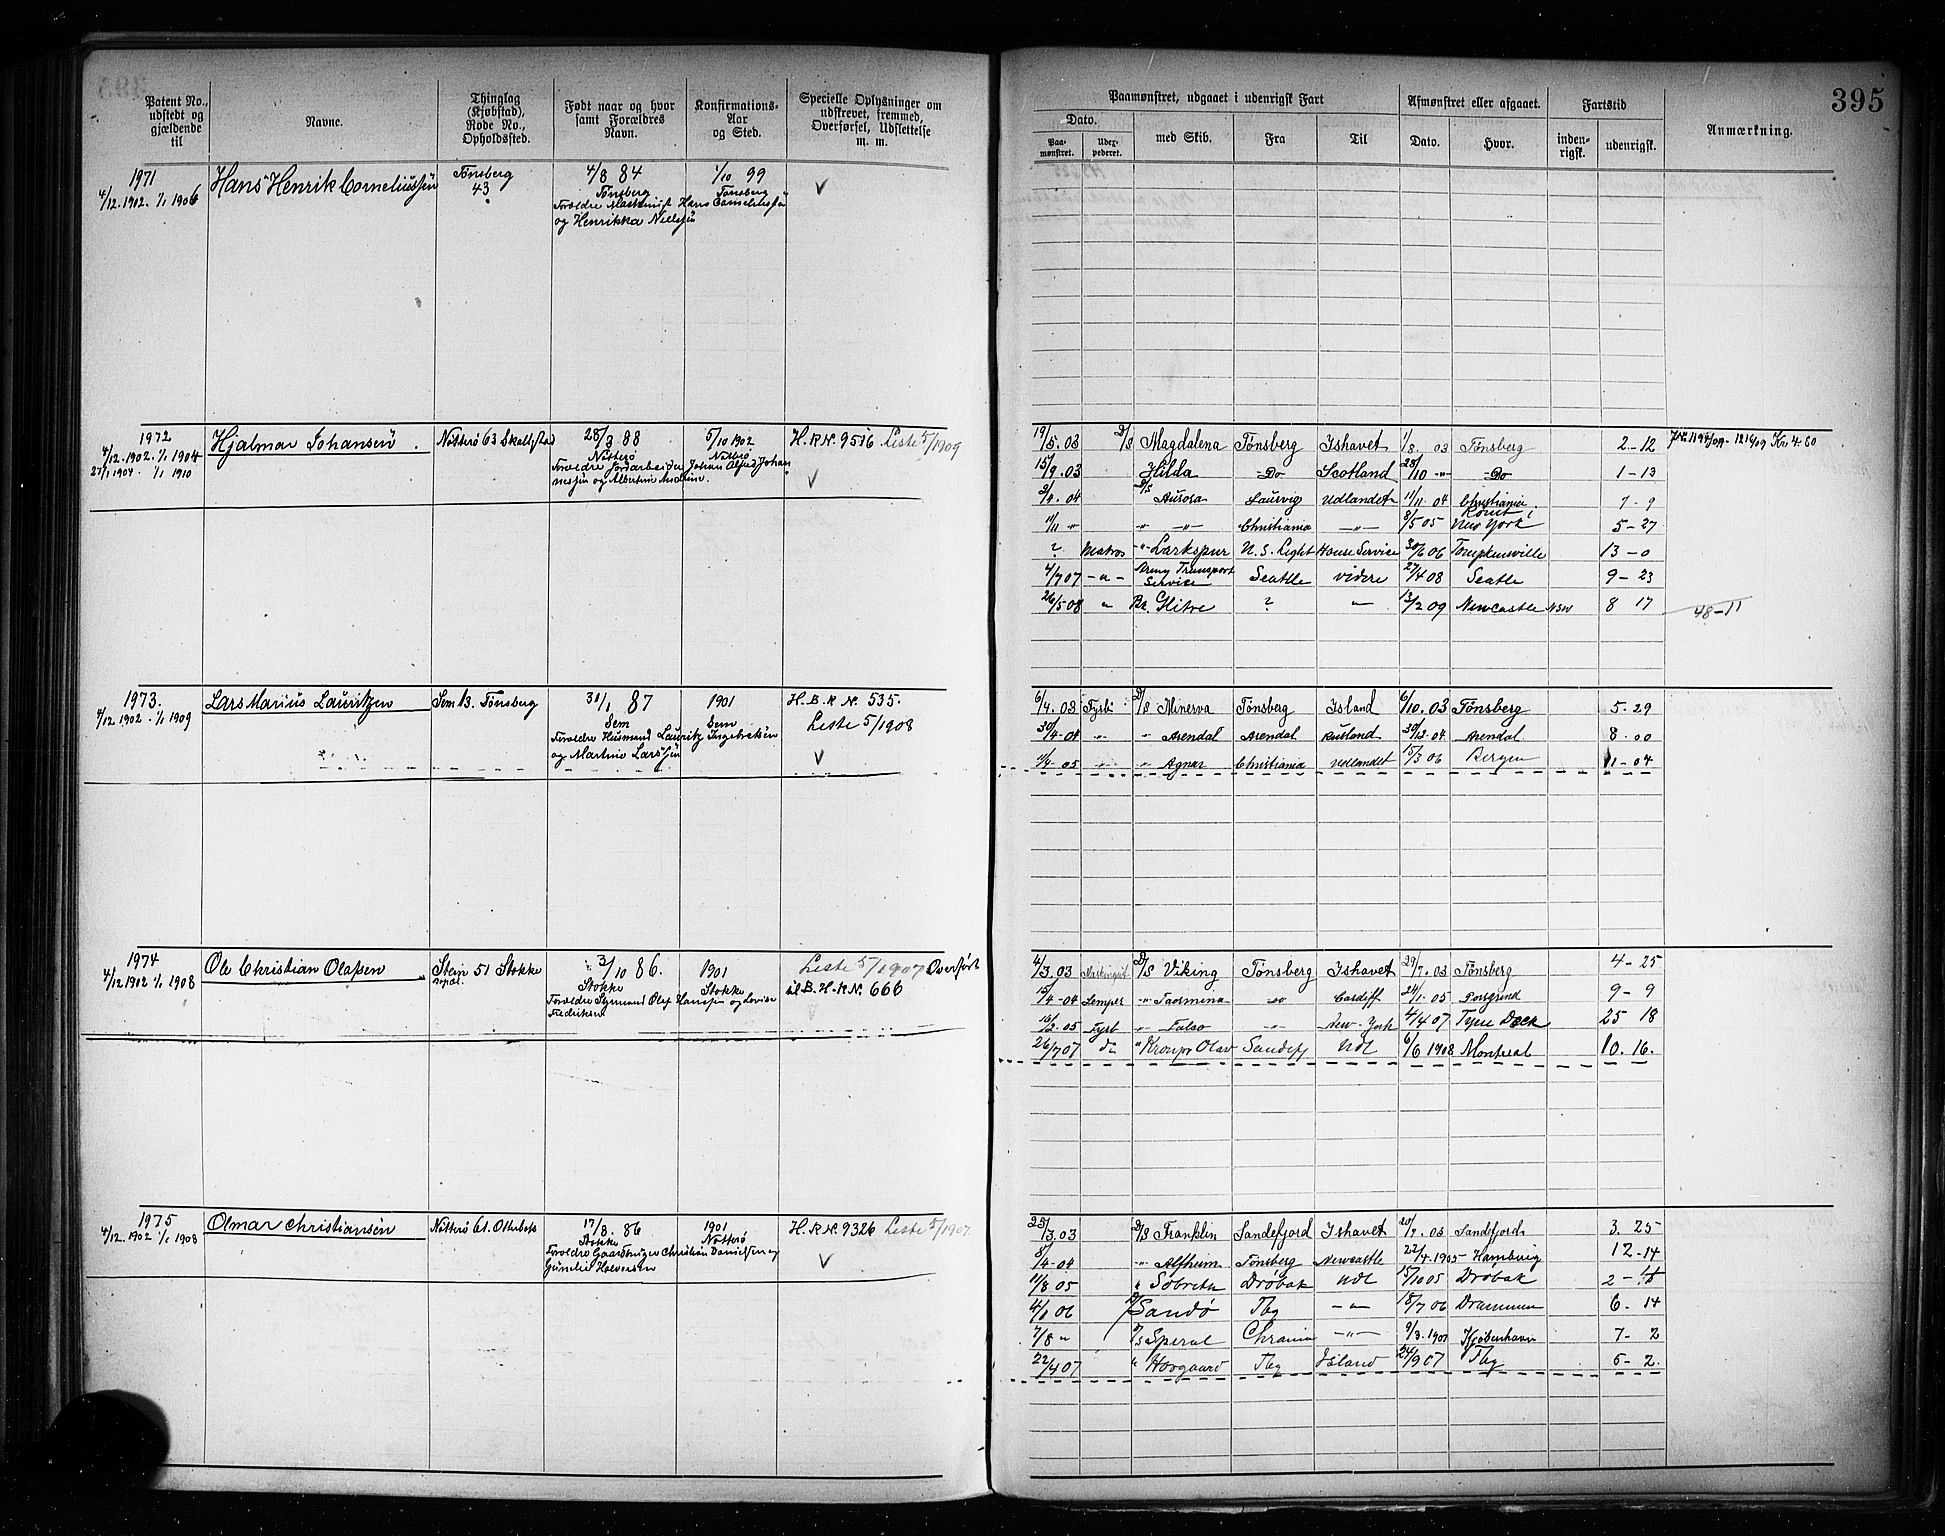 395
Patent No., udstedt og gjældende til
Navne.
Thinglag (Kjøbstad), Rode No., Opholdssted.
Født naar og hvor samt Forældres Navn.
Konfirmations-Aar og Sted.
Specielle Oplysninger om udskrevet, fremmed, Overførsel, Udslettelse m. m.
Paamønstret, udgaaet i udenrigsk Fart
Afmønstret eller afgaaet.
Fartstid
Anmærkning.
Dato.
Paa-mønstret.
med Skib.
Fra
Til
Dato.
Hvor.
inden-rigsk.
udenrigsk.
1971
4/12. 1902. 1/1 1906
Hans Henrik Corneliussen
Tønsberg
43
4/8 84
Tønsberg
Forældre Maskinist Hans Corneliussen
og Henrikka Nielsen
1/10 99
Tønsberg
1972
4/12. 1902. 1/1 1904
27/1 1904. 1/1 1910
Hjalmar Johansen
Nøtterø 63
28/3 88
Nøtterø
Forældre Jordarbeider Johan Alfred Johan
nesen og Albertine Andrine.
5/10 1902
Nøtterø
H.R.N. 9516 Liste 5/1909
19/5. 03 D/S Magdalena Tønsberg Ishavet 1/8. 03 Tønsberg 2-12
15/9. 03 Hilda Do Scotland 28/10 " Do 1-13
2/4. 04 D/S Aurora Laurvig Udlandet 11/11. 04 Christiania 7-9
11/11 " " Christiania " 8/5 05 Rømt i New York 5-27
? Matros " Larkspur U. S. Light House Service 30/6 06 Tompkinsville 13-0
4/7 07 " Army Transport Service Seattle videre 27/4 08 Seatle 9-23
26/5 08 " Hitre ? " 13/2 09 Newcastle NSW 8 17
48-11
1973.
4/12 1902. 1/1 1909
Lars Marius Lauritzen
Sem 13. Tønsberg
31/1 87
Sem
Forældre Husmand Lauritz Ingebretsen
og Martine Larssen
1901
Sem
H. B. R N. 535.
Liste 5/1908
6/4. 03 Fyrb. D/S Minerva Tønsberg Island 6/10. 03 Tønsberg 5-29
30/4-04 " " Arendal Arendal Rusland 30/12. 04 Arendal 8-00
1/4-05 " " Agnar Christiania Udlandet 15/3 06 Bergen 11-04
1974
4/12 1902 1/1 1908
Ole Christian Olafsen
Stein 51 Stokke
3/10 86.
Stokke
Forældre Sømand Olaf Hanssen og Lovise
Fredriksen
1901
Stokke
Liste 5/1907 Overført
til B. H. R N. 666
4/3. 03 D/S Viking Tønsberg Ishavet 29/7. 03 Tønsberg 4-25
15/4-04 Lemper " Taormina " Cardiff 24/1. 05 Porsgrund 9-9
16/2. 05 Fyrb " Falso " New-York 4/4 07 Tyne Dock 25 18
26/7 07 do " Kronpr Olav Sandefj Udl 6/6 1908 Montreal 10. 16.
1975
4/12. 1902 1/1 1908
Olmar Christiansen
Nøtterø 61.
17/8. 86
Stokke
Forældre Gaardbruger Christian Danielsen og
Gunelie Halvorsen
1901
Nøtterø
H. R N. 9326 Liste 5/1907
23/3. 03 D/S Franklin Sandefjord Ishavet 20/7. 03 Sandefjord 3. 25
8/4-04 " Alfheim Tønsberg Newcastle 22/4. 1905 Hambrig 12-14
11/8 05 " Drøbak Udl 15/10 05 Drøbak 2-4
4/1 06 D/S Sandø Tbg " 18/7 06 Drammen 6. 14
7/8 " D/S Speral Chrania " 9/3. 1907 Kjøbenhavn 7-2
22/4 07 " Horgaard Tbg Island 24/9 07 Tbg 5-2.